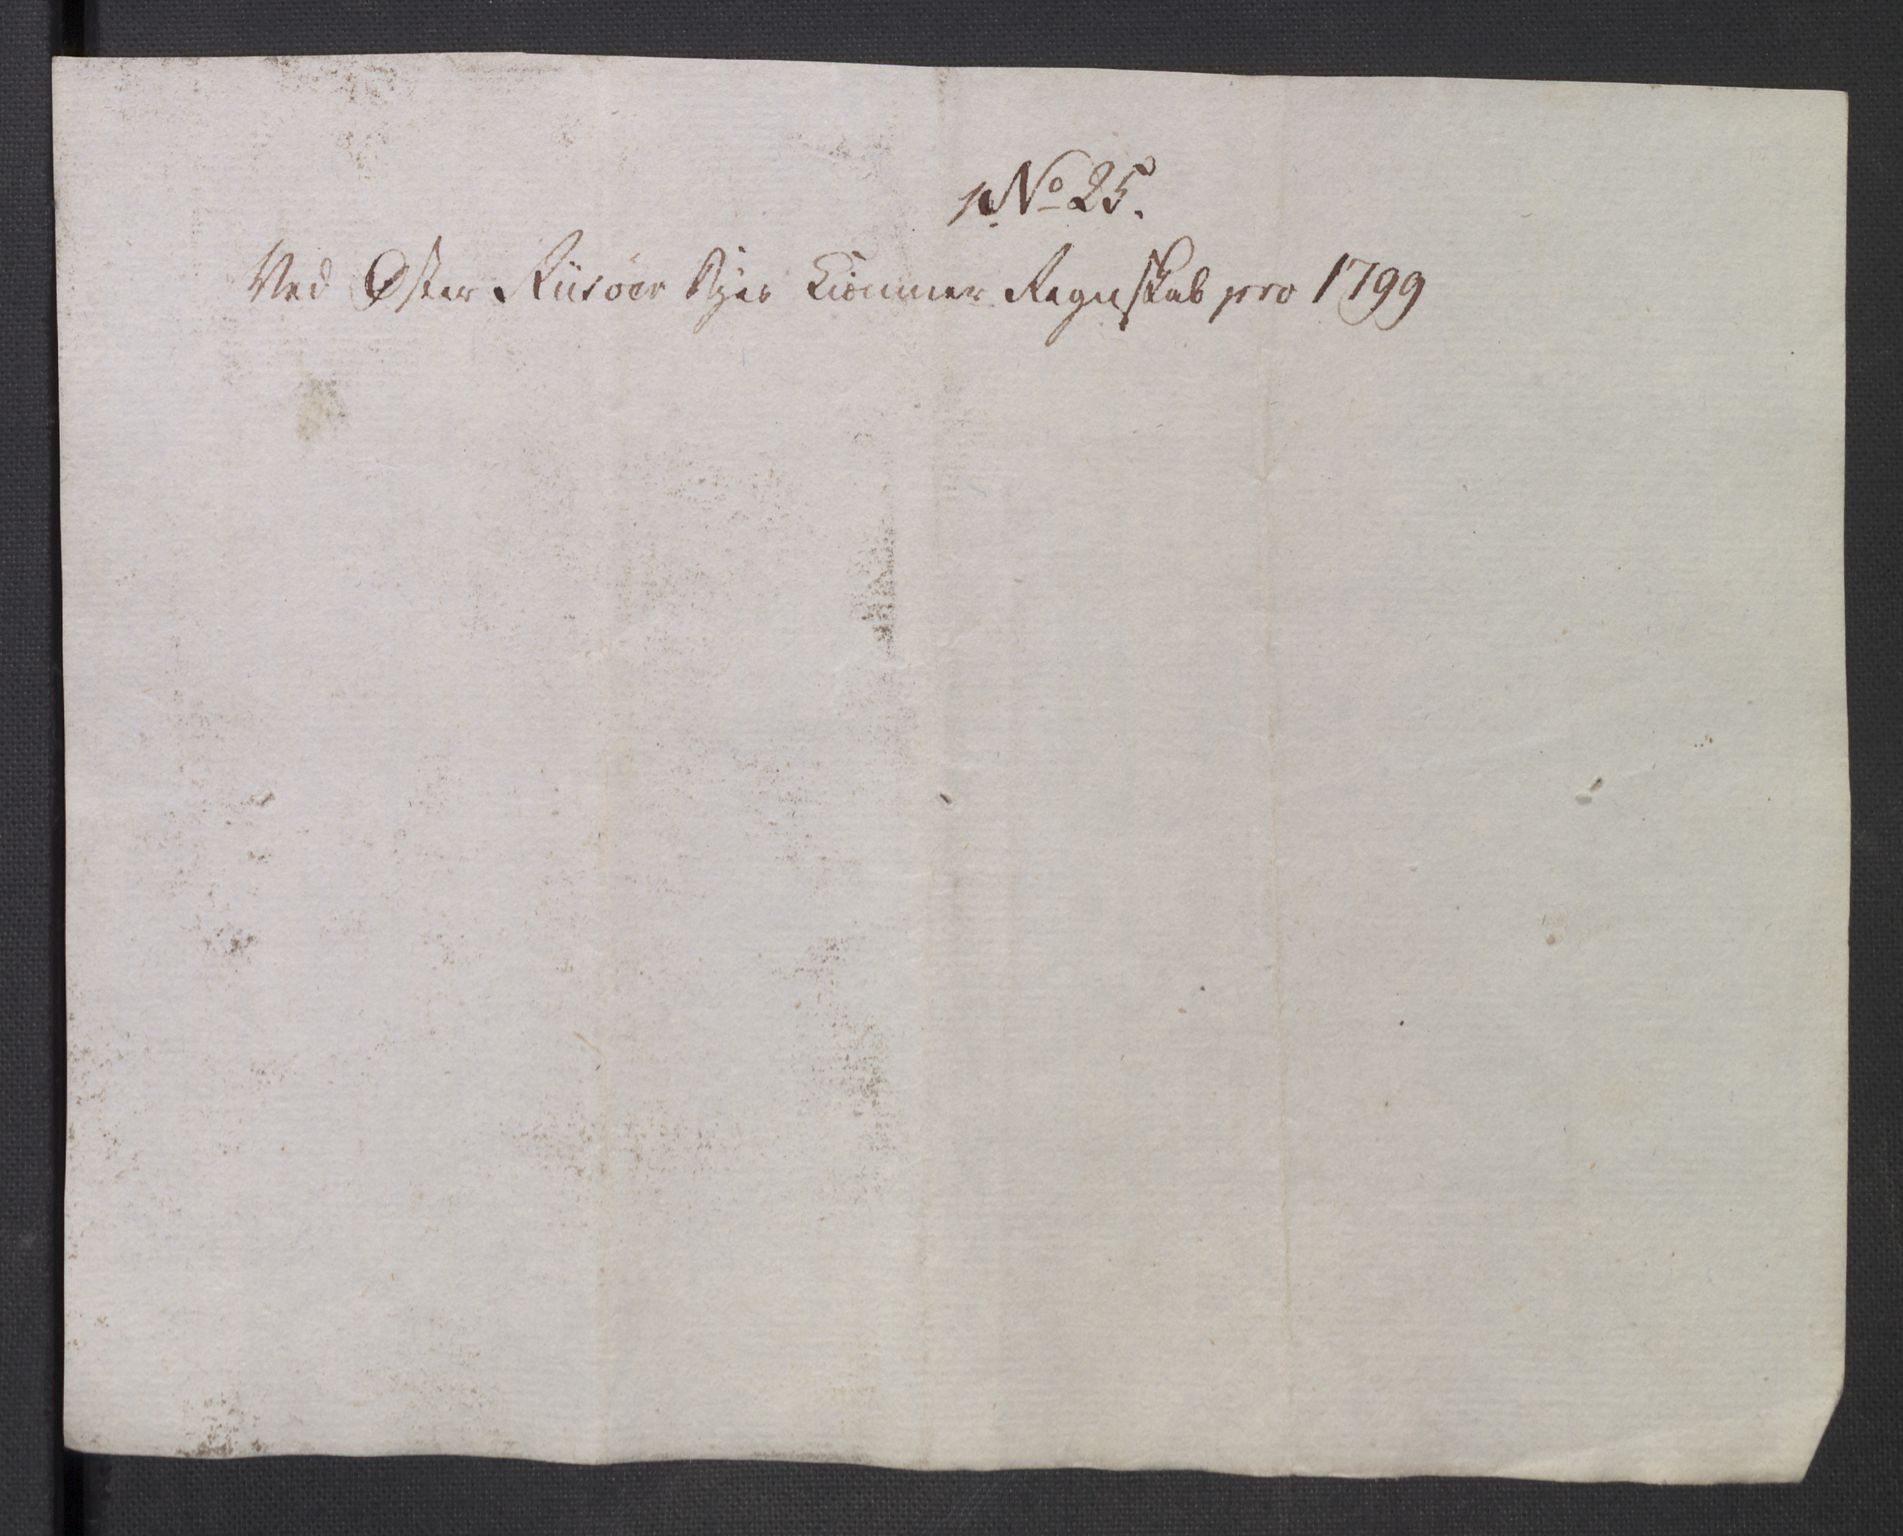 No 25.
Ved Øster Riisöer Byes Kiæmner Regnskab pro 1799